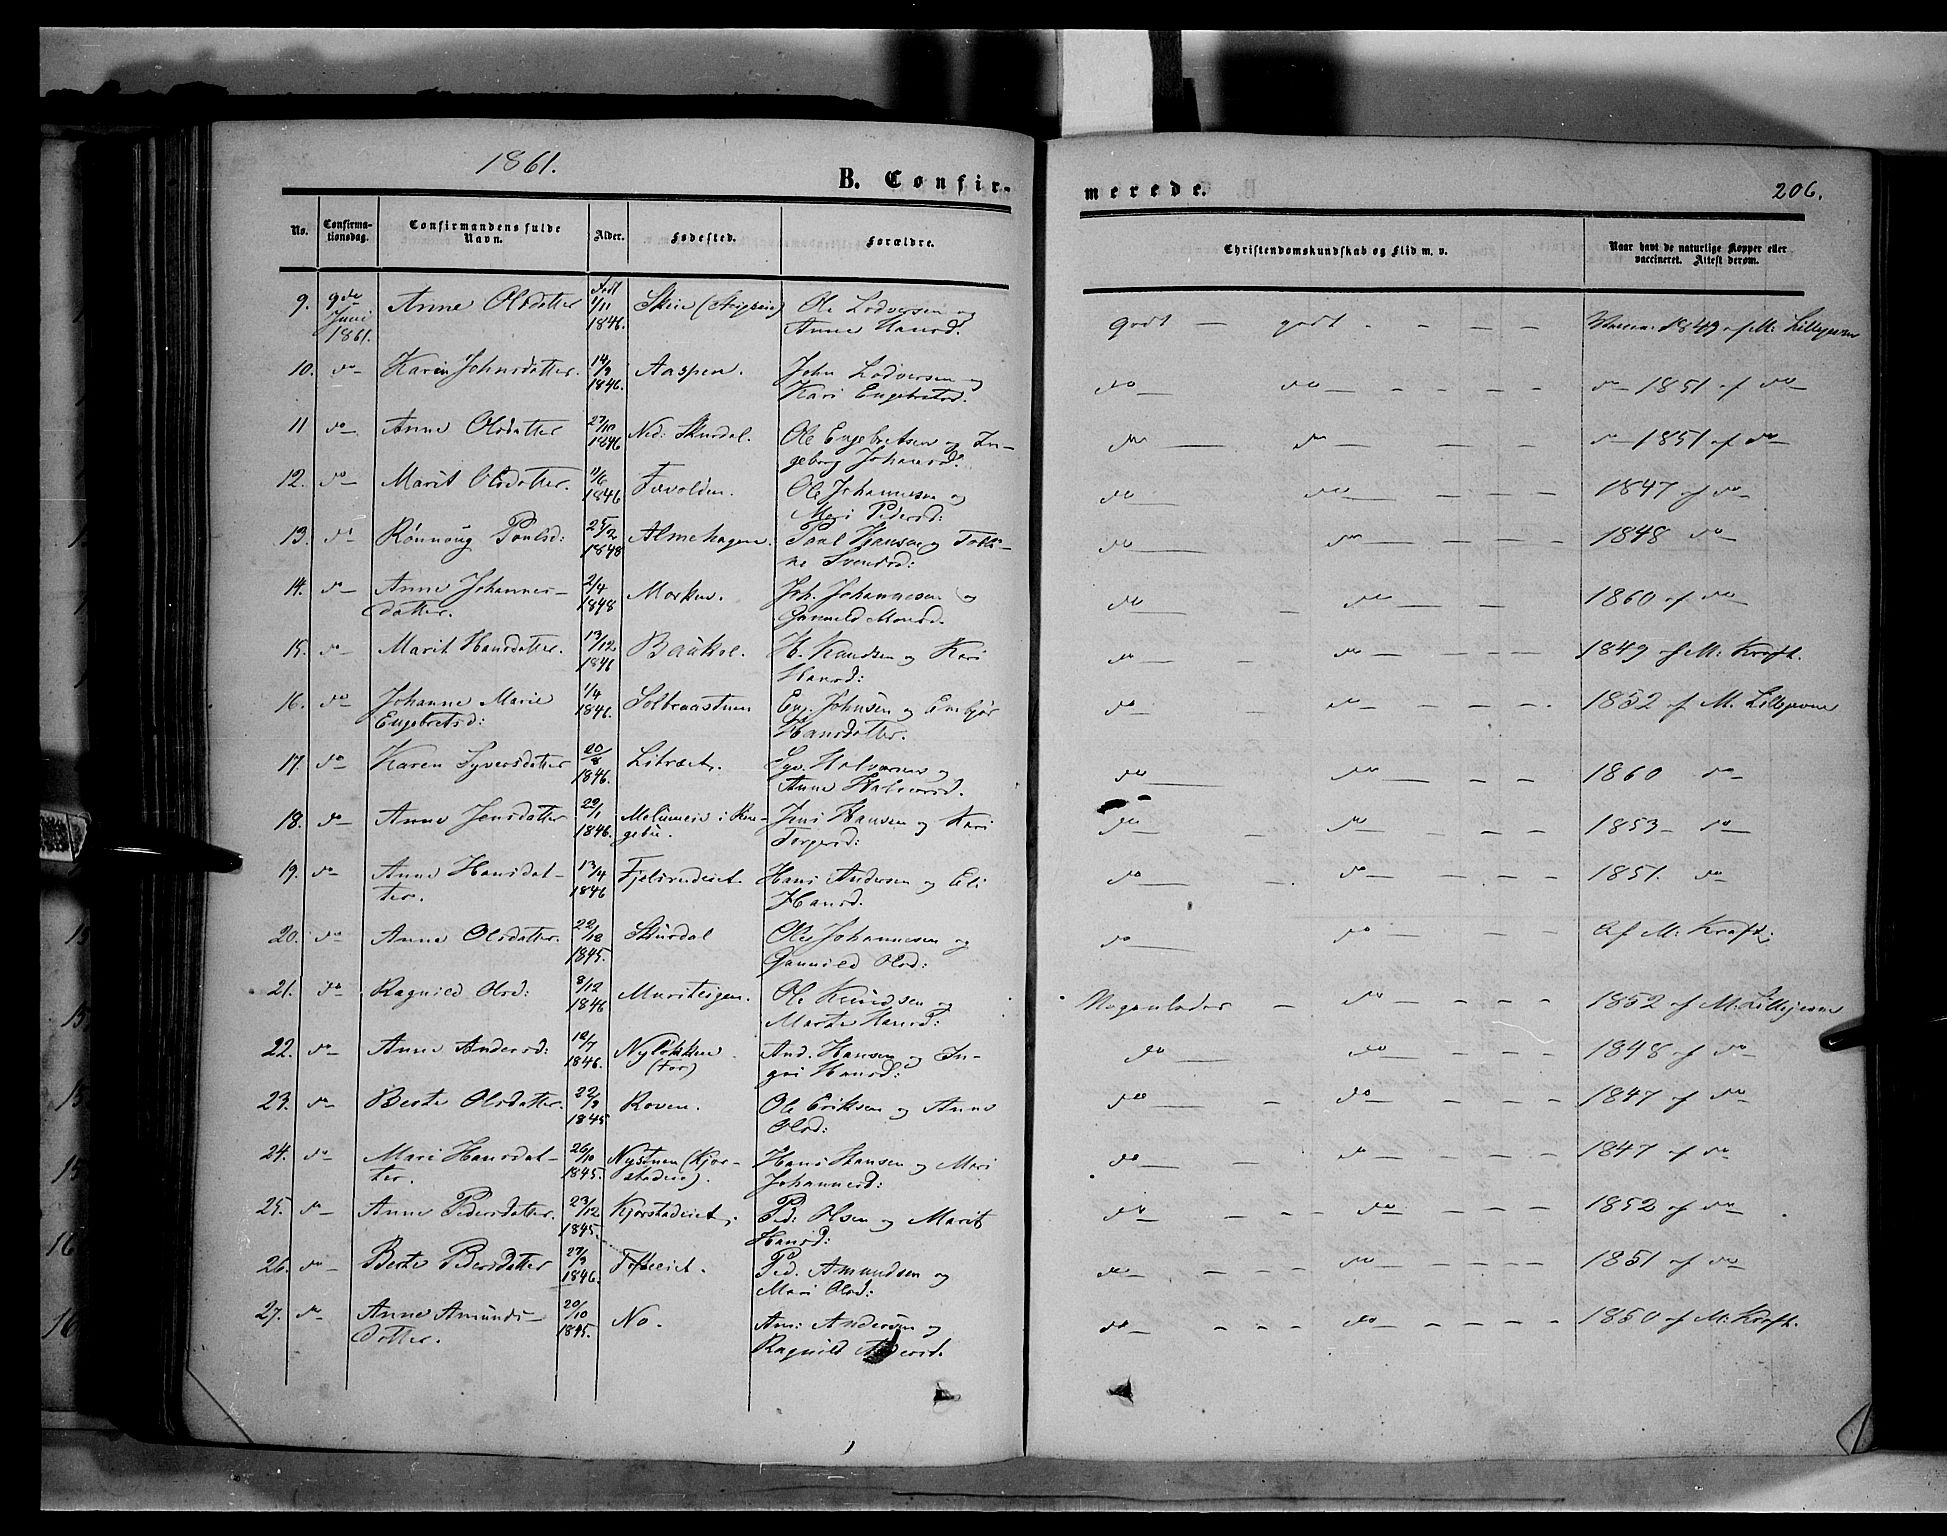 1861.
B. Confir-
merede.
206.
No.
Confirma-
tionsdag.
Confirmandens fulde
Navn.
Alder.
Fødested.
Forældre.
Christendomskundskab og Flid m. v.
Naar havt de naturlige Kopper eller
vaccineret. Attest derom.
9. 9de Juni 1861. Anne Olsdatter født 1/11 1846. Skeie Ole Lodversen og
Anne Hansd. godt — godt - - - - 1849 af M: Lillejevne
10. do Karin Johnsdatter. 14/9 1846. Aaspen. John Lodversen og
Kari Engebretsd. do do - - - - do 1851 af do
11 do Anne Olsdatter 27/10 1846 Ned: Skurdal. Ole Engebretsen og In-
geborg Johansd. do do - - - - do 1851 af do
12. do Marit Olsdatter. 11/6 1846 Ole Johannesen og
Mari Pedersd: do do - - - - 1847 af do
13. do Rønnoug Poulsd: 25/2 1848 Almehagen. Poul Hansen og
Svendsd: do do - - - - 1848 do
14. do Anne Johannes-
datter. 2/4 1848 Morken. Joh. Johannesen og
Gunnild Monsd. do do - - - 1860 af do
15. do Marit Hansdatter. 13/12 1846 H. Knudsen og Kari
Hansd: do - do - - - - 1849 af M: Kraft.
16. do Johanne Marie
Engebretsd: 1/4 1846. Solbraastuen Eng. Johnsen og Embjør
Hansdatter. do do - - - - 1852 af M. Lillejevne
17. do Karen Syversdatter 20/8 1846. Syv. Halvorsen og
Anne Halvorsd. do do - - - 1860 do
18. do Anne Jensdatter 29/1 1846. Jens Hansen og Kari
Torgersd: do do - - - - 1853 - do
19. do Anne Hansdat-
ter. 13/4 1846 Hans Andersen og Eli
Hansd. do - do - - - - 1851. do
20. do Anne Olsdatter. 22/12 1845. Skurdal Ole Johannesen og
Gunnild Olsd: do do - - Af M: Kraft.
21. do Ragnild Olsd: 8/12 1846 Ole Knudsen og
Marte Hansd: Nogenledes - do - - - 1852 af M: Lillejevne
22. do Anne Andersd: 12/7 1846. Nyløkken. (For) And. Hansen og In-
gri Hansd: do do - - - - 1848 af do
23. do Berte Olsdatter. 22/9 1845 Roven. Ole Eriksen og Anne
Olsd: do - do - - - - 1847 af do
24. do Mari Hansdat-
ter. 26/10 1845. Nystuen (Kjør-
stadeie). Hans Hansen og Mari
Johannesd: do do - - - - 1847 af do
25. do Anne Pedersdatter. 23/12 1845. Kjørstadeiet. Ped: Olsen og Marit
Hansd: do - - - do - - - - 1852 af do
26. do Berte Pedersdatter 27/3 1846. Ped. Amundsen og
Mari Olsd: do - - - do - - - - 1851 af do
27. do Anne Amunds-
datter. 20/10 1845. No. Am: Andersen og
Ragnild Andersd. do - - - do - - - - 1850 af M: Kraft.